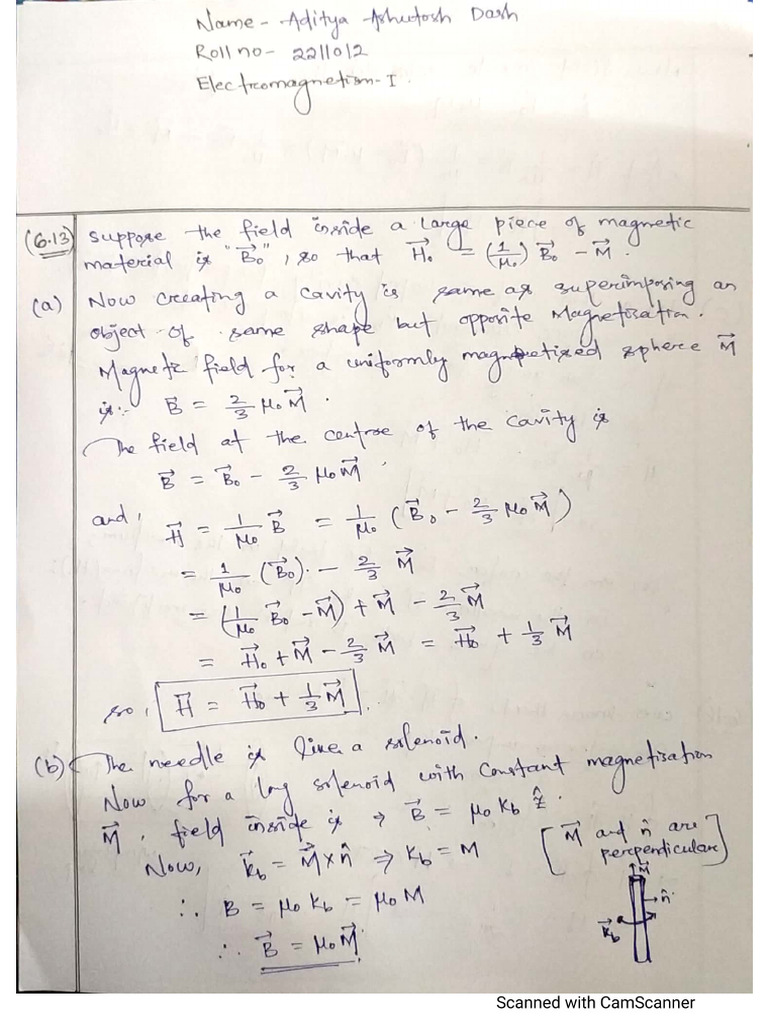 Name - Aditya Ashutosh Dash
Roll no - 2211012
Electromagnetism-I.
(6.13) Suppose the field inside a large piece of magnetic
material is "B⃗₀", so that H⃗₀ = (1/μ₀) B⃗₀ - M⃗.
(a) Now creating a cavity is same as superimposing an
object of same shape but opposite Magnetisation.
Magnetic field for a uniformly magnetized sphere M⃗
is:- B⃗ = 2/3 μ₀M⃗.
The field at the centre of the cavity is
B⃗ = B⃗₀ - 2/3 μ₀M⃗.
and, H⃗ = 1/μ₀ B⃗ = 1/μ₀ (B⃗₀ - 2/3 μ₀M⃗)
= 1/μ₀ (B⃗₀). - 2/3 M⃗
= (1/μ₀ B⃗₀ - M⃗) + M⃗ - 2/3 M⃗
= H⃗₀ + M⃗ - 2/3 M⃗ = H⃗₀ + 1/3 M⃗
so, H⃗ = H⃗₀ + 1/3 M⃗.
(b) The needle is like a solenoid.
Now for a long solenoid with constant magnetisation
M⃗, field inside is → B⃗ = μ₀ K_b ẑ.
Now, K⃗_b = M⃗ × n̂ ⇒ K_b = M [M⃗ and n̂ are
perpendicular]
∴ B = μ₀ K_b = μ₀ M
∴ B⃗ = μ₀M⃗.
M⃗
n̂
K⃗_b
Scanned with CamScanner